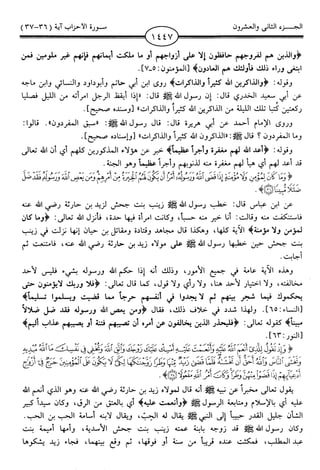 الجـــزء الثاني والعشرون
سورة الأحزاب آية (٣٦-٣٧)
١٤٤٧
﴿والذين هم لفروجهم حافظون إلا على أزواجهم أو ما ملكت أيمانهم فإنهم غير ملومين فمن
ابتغى وراء ذلك فأولئك هم العادون﴾ [المؤمنون: ٥-٧].
وقوله: ﴿والذاكرين الله كثيراً والذاكرات﴾ روى ابن أبي حاتم وأبوداود والنسائي وابن ماجه
عن أبي سعيد الخدري قال: إن رسول الله ﷺ قال: «إذا أيقظ الرجل امرأته من الليل فصليا
ركعتين كُتبا تلك الليلة من الذاكرين الله كثيراً والذاكرات» [وسنده صحيح].
وروى الإمام أحمد عن أبي هريرة قال: قال رسول الله ﷺ: «سبق المفردون». قالوا:
وما المفردون؟ قال ﷺ: «الذاكرون الله كثيراً والذاكرات» [وإسناده صحيح].
وقوله: ﴿أعد الله لهم مغفرة وأجراً عظيماً﴾ خبر عن هؤلاء المذكورين كلهم أي أن الله تعالى
قد أعد لهم أي هيأ لهم مغفرة منه لذنوبهم وأجراً عظيماً وهو الجنة.
﴿وَمَا كَانَ لِمُؤْمِنٍ وَلَا مُؤْمِنَةٍ إِذَا قَضَى اللَّهُ وَرَسُولُهُ أَمْرًا أَن يَكُونَ لَهُمُ الْخِيَرَةُ مِنْ أَمْرِهِمْ وَمَن يَعْصِ اللَّهَ وَرَسُولَهُ فَقَدْ ضَلَّ
ضَلَالًا مُّبِينًا﴾.
عن ابن عباس قال: خطب رسول الله ﷺ زينب بنت جحش لزيد بن حارثة رضي الله عنه
فاستنكفت منه وقالت: أنا خير منه حسباً، وكانت امرأة فيها حدة، فأنزل الله تعالى: ﴿وما كان
لمؤمن ولا مؤمنة﴾ الآية كلها، وهكذا قال مجاهد وقتادة ومقاتل بن حيان إنها نزلت في زينب
بنت جحش حين خطبها رسول الله ﷺ على مولاه زيد بن حارثة رضي الله عنه، فامتنعت ثم
أجابت.
وهذه الآية عامة في جميع الأمور، وذلك أنه إذا حكم الله ورسوله بشيء فليس لأحد
مخالفته، ولا اختيار لأحد هنا، ولا رأي ولا قول، كما قال تعالى: ﴿فلا وربك لايؤمنون حتى
يحكموك فيما شجر بينهم ثم لا يجدوا في أنفسهم حرجاً مما قضيت ويسلموا تسليماً﴾
[النساء: ٦٥]. ولهذا شدد في خلاف ذلك، فقال ﴿ومن يعص الله ورسوله فقد ضل ضلالاً
مبيناً﴾ كقوله تعالى: ﴿فليحذر الذين يخالفون عن أمره أن تصيبهم فتنة أو يصيبهم عذاب أليم﴾
[النور: ٦٣].
﴿وَإِذْ تَقُولُ لِلَّذِي أَنْعَمَ اللَّهُ عَلَيْهِ وَأَنْعَمْتَ عَلَيْهِ أَمْسِكْ عَلَيْكَ زَوْجَكَ وَاتَّقِ اللَّهَ وَتُخْفِي فِي نَفْسِكَ مَا اللَّهُ مُبْدِيهِ
وَتَخْشَى النَّاسَ وَاللَّهُ أَحَقُّ أَن تَخْشَاهُ فَلَمَّا قَضَى زَيْدٌ مِّنْهَا وَطَرًا زَوَّجْنَاكَهَا لِكَيْ لَا يَكُونَ عَلَى الْمُؤْمِنِينَ حَرَجٌ فِي أَزْوَاجِ
أَدْعِيَائِهِمْ إِذَا قَضَوْا مِنْهُنَّ وَطَرًا وَكَانَ أَمْرُ اللَّهِ مَفْعُولًا﴾.
يقول تعالى مخبراً عن نبيه ﷺ أنه قال لمولاه زيد بن حارثة رضي الله عنه وهو الذي أنعم الله
عليه أي بالإسلام ومتابعة الرسول ﷺ ﴿وأنعمت عليه﴾ أي بالعتق من الرق، وكان سيداً كبير
الشأن جليل القدر حبيباً إلى النبي ﷺ يقال له الحِبّ، ويقال لابنه أسامة الحب بن الحب.
وكان رسول الله ﷺ قد زوجه بابنة عمته زينب بنت جحش الأسدية، وأمها أميمة بنت
عبد المطلب، فمكثت عنده قريباً من سنة أو فوقها، ثم وقع بينهما، فجاء زيد يشكوها